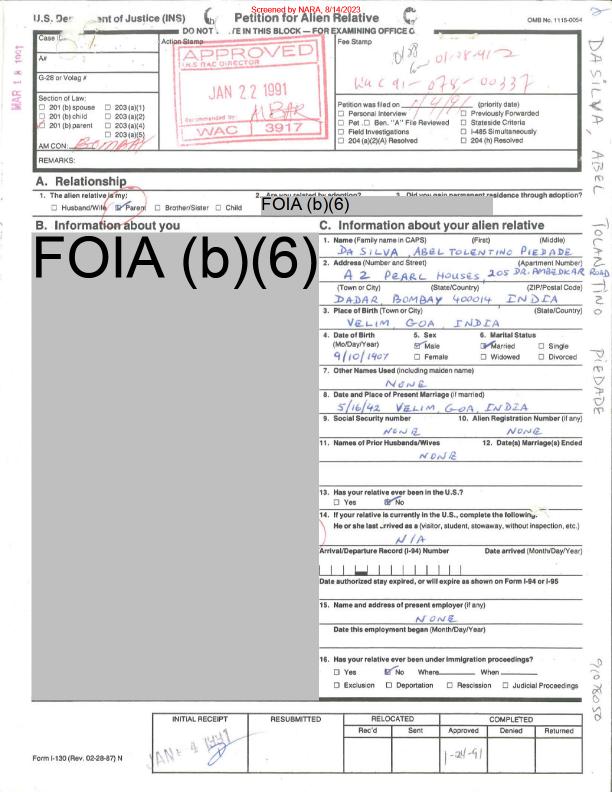 Screened by NARA, 8/14/2023
Petition for Alien Relative
OMB No. 1115-0054
of Justice (INS)
DO NOT
IN THIS BLOCK — FOR EXAMINING OFFICE
Case
A#
G-28 or Volag #
Section of Law:
☐ 201 (b) spouse ☐ 203 (a)(1)
☐ 201 (b) child ☐ 203 (a)(2)
201 (b) parent ☐ 203 (a)(4)
☐ 203 (a)(5)
AM CON: BOMBAY
REMARKS:
Action Stamp
APPROVED
DIRECTOR
JAN 22 1991
Recommended by
WAC 3917
Fee Stamp
01-28-91-2
WAC 91-078-00337
Petition was filed on 1/4/91 (priority date)
☐ Personal Interview ☐ Previously Forwarded
☐ Pet. ☐ Ben. "A" File Reviewed ☐ Stateside Criteria
☐ Field Investigations ☐ I-485 Simultaneously
☐ 204 (a)(2)(A) Resolved ☐ 204 (h) Resolved
MAR 18 1991
DASILVA, ABEL TOLANTINO PIEDADE
91078050
A. Relationship
1. The alien relative is my:
☐ Husband/Wife ☑ Parent ☐ Brother/Sister ☐ Child
2. Are you related by adoption?
FOIA (b)(6)
3. Did you gain permanent residence through adoption?
B. Information about you
FOIA (b)(6)
C. Information about your alien relative
1. Name (Family name in CAPS) (First) (Middle)
DA SILVA, ABEL TOLENTINO PIEDADE
2. Address (Number and Street) (Apartment Number)
A 2 PEARL HOUSES, 205 DR. AMBEDKAR ROAD
(Town or City) (State/Country) (ZIP/Postal Code)
DADAR, BOMBAY 400014 INDIA
3. Place of Birth (Town or City) (State/Country)
VELIM, GOA, INDIA
4. Date of Birth 5. Sex 6. Marital Status
(Mo/Day/Year) ☑ Male ☑ Married ☐ Single
9/10/1907 ☐ Female ☐ Widowed ☐ Divorced
7. Other Names Used (including maiden name)
NONE
8. Date and Place of Present Marriage (if married)
5/16/42 VELIM, GOA, INDIA
9. Social Security number 10. Alien Registration Number (if any)
NONE NONE
11. Names of Prior Husbands/Wives 12. Date(s) Marriage(s) Ended
NONE
13. Has your relative ever been in the U.S.?
☐ Yes ☑ No
14. If your relative is currently in the U.S., complete the following:
He or she last arrived as a (visitor, student, stowaway, without inspection, etc.)
N/A
Arrival/Departure Record (I-94) Number Date arrived (Month/Day/Year)
Date authorized stay expired, or will expire as shown on Form I-94 or I-95
15. Name and address of present employer (if any)
NONE
Date this employment began (Month/Day/Year)
16. Has your relative ever been under immigration proceedings?
☐ Yes ☑ No Where When
☐ Exclusion ☐ Deportation ☐ Rescission ☐ Judicial Proceedings
INITIAL RECEIPT RESUBMITTED RELOCATED COMPLETED
Rec'd Sent Approved Denied Returned
JAN 4 1991
1-24-91
Form I-130 (Rev. 02-28-87) N